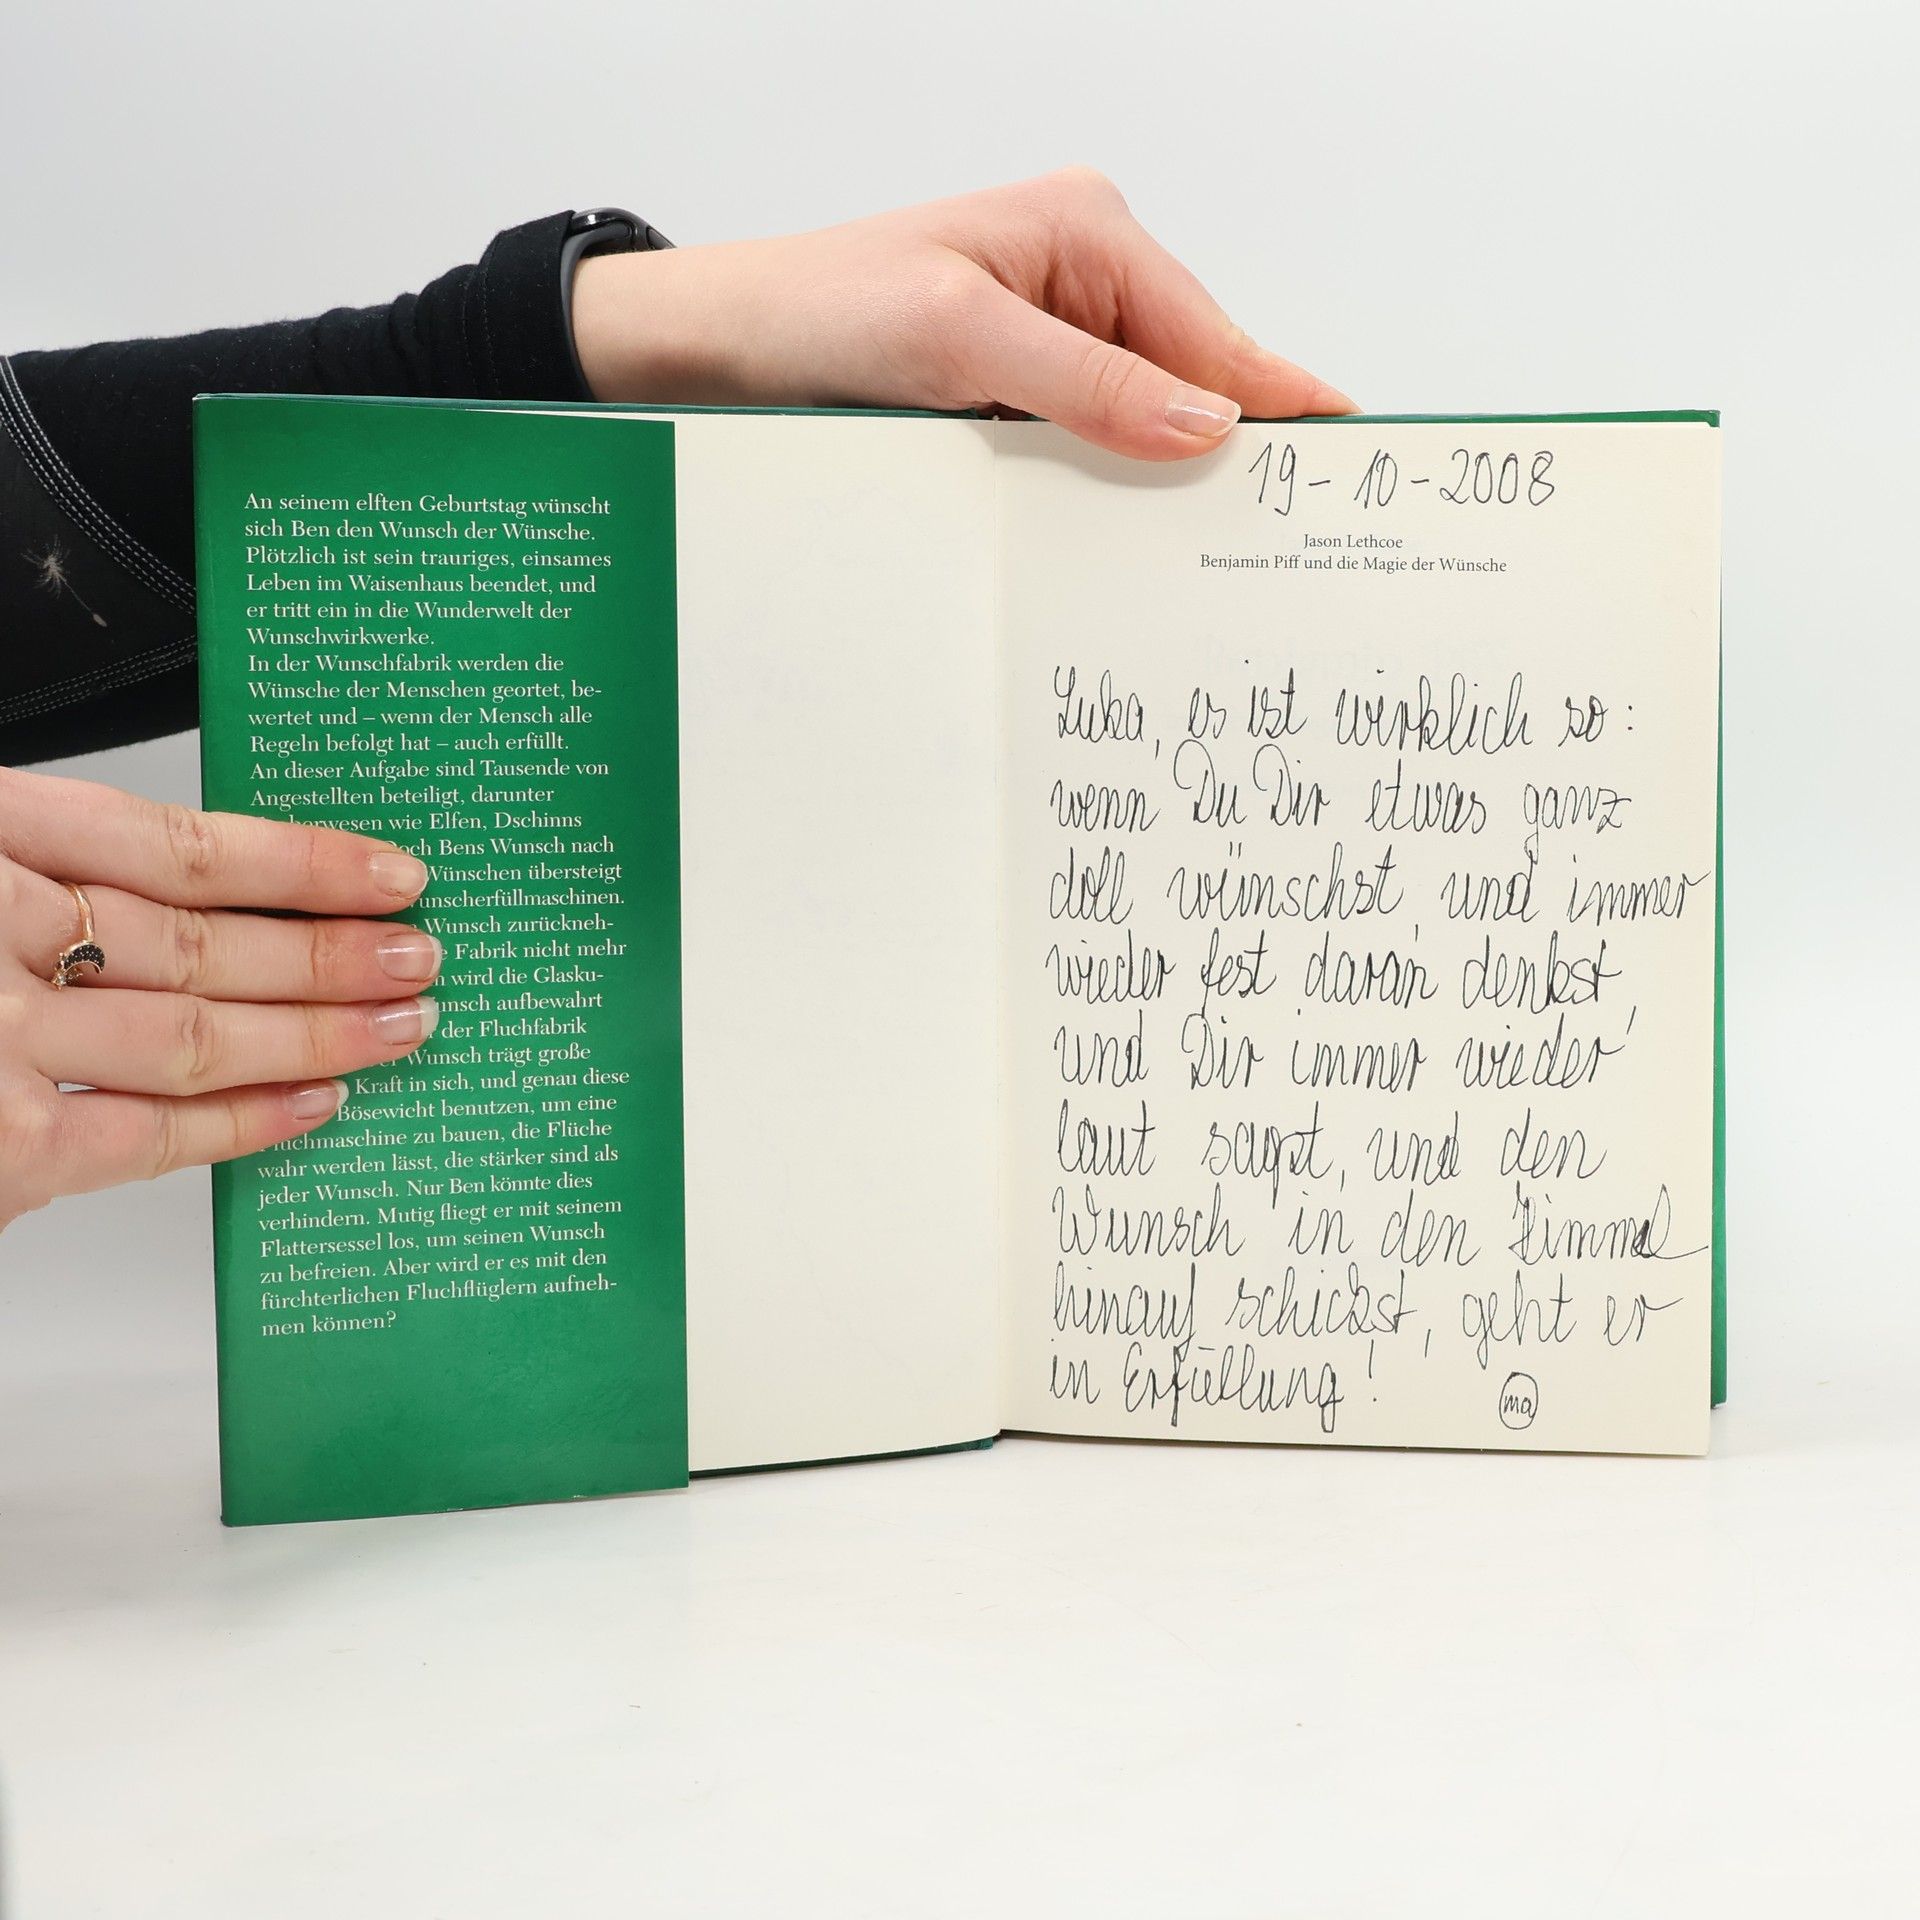 An seinem elften Geburtstag wünscht
sich Ben den Wunsch der Wünsche.
Plötzlich ist sein trauriges, einsames
Leben im Waisenhaus beendet, und
er tritt ein in die Wunderwelt der
Wunschwirkwerke.
In der Wunschfabrik werden die
Wünsche der Menschen geortet, be-
wertet und – wenn der Mensch alle
Regeln befolgt hat – auch erfüllt.
An dieser Aufgabe sind Tausende von
Angestellten beteiligt, darunter
wie Elfen, Dschinns
Bens Wunsch nach
Wünschen übersteigt
Wunsch zurückneh-
Fabrik nicht mehr
wird die Glasku-
aufbewahrt
der Fluchfabrik
Wunsch trägt große
Kraft in sich, und genau diese
Bösewicht benutzen, um eine
zu bauen, die Flüche
wahr werden lässt, die stärker sind als
jeder Wunsch. Nur Ben könnte dies
verhindern. Mutig fliegt er mit seinem
Flattersessel los, um seinen Wunsch
zu befreien. Aber wird er es mit den
fürchterlichen Fluchflüglern aufneh-
men können?
19-10-2008
Jason Lethcoe
Benjamin Piff und die Magie der Wünsche
Luka, es ist wirklich so:
wenn Du Dir etwas ganz
doll wünschst, und immer
wieder fest daran denkst,
und Dir immer wieder
laut sagst, und den
Wunsch in den Himmel
hinauf schickst, geht er
in Erfüllung!
ma